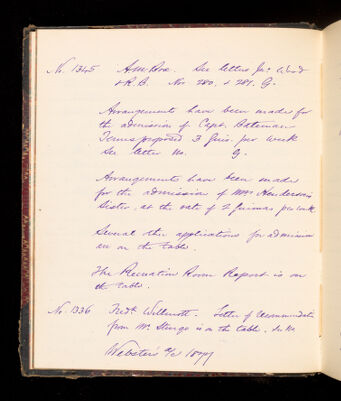 No. 1345 See letters Jno. Wood
& R.B. Nos. 280, & 281. G.
Arrangements have been made for
the admission of Capt. Bateman
Terms proposed 3 Gns. per week
See letter No. G.
Arrangements have been made
for the admission of Mrs Henderson's
Sister, at the rate of 2 guineas per week
Several other applications for admission
are on the table.
The Recreation Room Report is on
the table.
No. 1336 Fredk Willmott. Letter of recommendation
from Mr. Sturge is on the table.
Webster's a/c